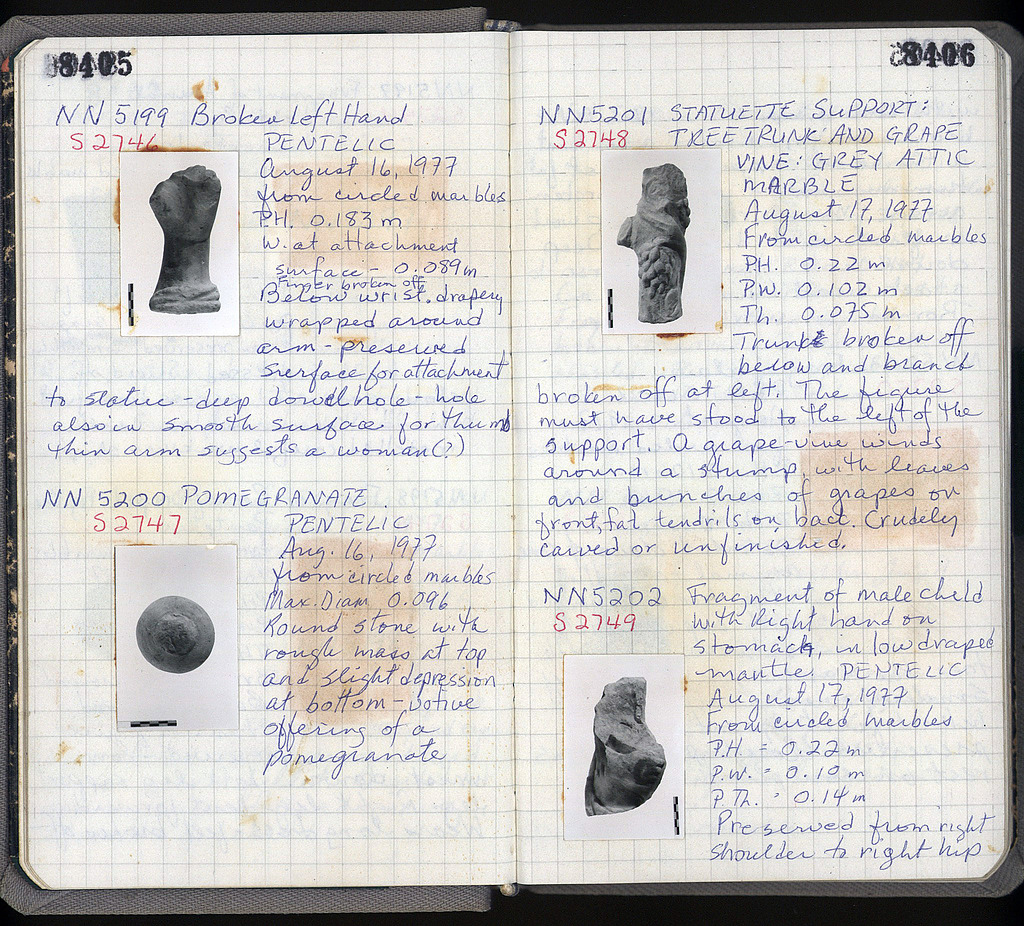 8405
NN 5199 Broken Left Hand
S 2746 PENTELIC
August 16, 1977
from circled marbles
PH. 0.183 m
W. at attachment
surface - 0.089 m
Finger broken off
Below wrist, drapery
wrapped around
arm - preserved
surface for attachment
to statue - deep dowel hole - hole
also in smooth surface for thumb
thin arm suggests a woman (?)
NN 5200 POMEGRANATE
S 2747 PENTELIC
Aug. 16, 1977
from circled marbles
Max. Diam. 0.096
Round stone with
rough mass at top
and slight depression
at bottom - votive
offering of a
pomegranate
8406
NN5201 STATUETTE SUPPORT:
S 2748 TREE TRUNK AND GRAPE
VINE: GREY ATTIC
MARBLE
August 17, 1977
From circled marbles
P.H. 0.22 m
P.W. 0.102 m
Th. 0.075 m
Trunk broken off
below and branch
broken off at left. The figure
must have stood to the left of the
support. A grape-vine winds
around a stump, with leaves
and bunches of grapes on
front, fat tendrils on back. Crudely
carved or unfinished.
NN5202 Fragment of male child
S 2749 with Right hand on
stomach, in low draped
mantle. PENTELIC
August 17, 1977
From circled marbles
P.H = 0.22 m
P.W. = 0.10 m
P.Th. = 0.14 m
Preserved from right
shoulder to right hip